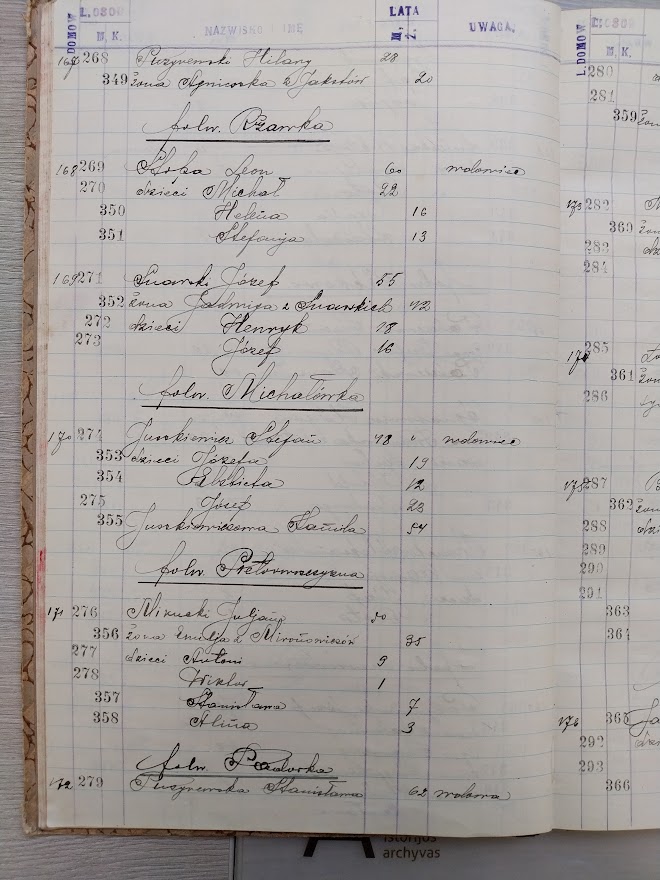 L.DOMOW L.OSOB M. K. NAZWISKO I IMĘ LATA M. Ż. UWAGA.
167 268 Puzyrewski Hilary 28
349 żona Agnieszka z 20
folw. Rżawka
168 269 Leon 60 wdowiec
270 dzieci Michał 22
350 Helena 16
351 Stefanja 13
169 271 Józef 55
352 żona Jadwiga z 42
272 dzieci Henryk 18
273 Józef 16
folw. Michałówka
170 274 Juszkiewicz Stefan 48 wdowiec
353 dzieci Józefa 19
354 Elżbieta 12
275 Józef 23
355 Juszkiewiczowa 54
folw.
171 276 Mikucki Juljan 50
356 żona Emilja z Mironowiczów 35
277 dzieci Antoni 9
278 Wiktor 1
357 Stanisława 7
358 Alina 3
folw.
172 279 Puzyrewska Stanisława 62 wdowa
L.DOMOW L.OSOB M. K.
280
281
359 żon
173 282
360 żon
283
284
174 285
361 żon
286
175 287
362 żon
288
289
290
291
363
364
176 365
292
293
366
istorijos
archyvas